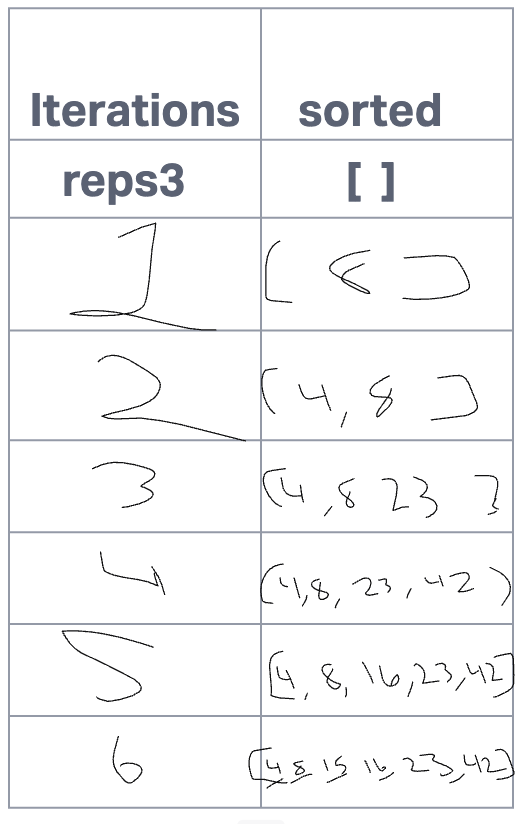 Iterations sorted
reps3 [ ]
1 [ 8 ]
2 [ 4, 8 ]
3 [ 4, 8 23 ]
4 ( 4, 8, 23, 42 )
5 [4, 8, 16, 23, 42]
6 [4 8 15 16, 23, 42]